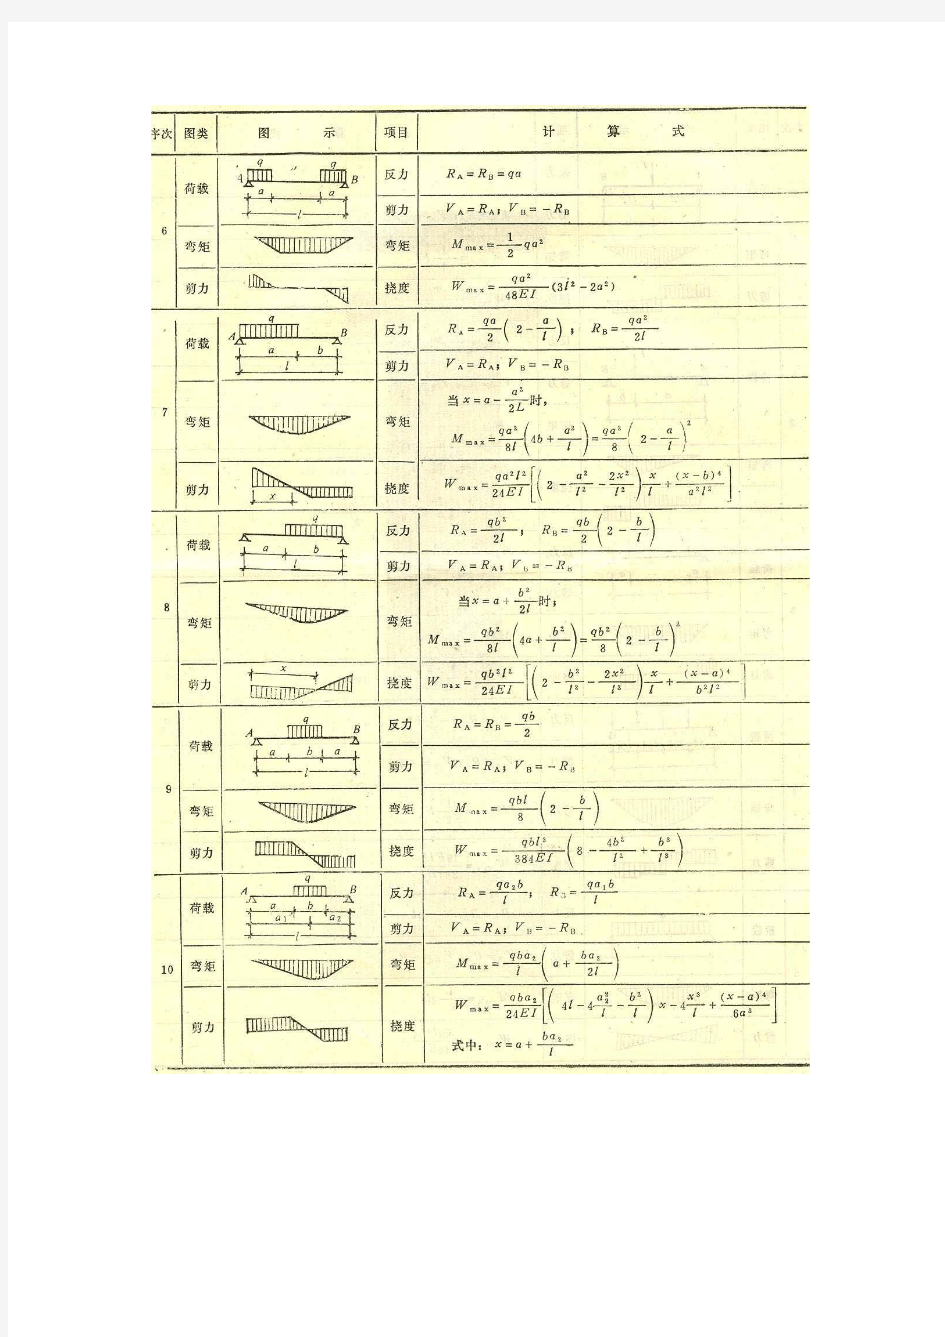 序次 图类 图 示 项目 计 算 式
6 荷载 q q A B a a l 反力 R_A=R_B=qa
剪力 V_A=R_A; V_B=-R_B
弯矩 弯矩 M_max=1/2 qa²
剪力 挠度 W_max=qa²/48EI (3l²-2a²)
7 荷载 q A B a b l 反力 R_A=qa/2 (2-a/l); R_B=qa²/2l
剪力 V_A=R_A; V_B=-R_B
弯矩 弯矩 当x=a-a²/2L时,
M_max=qa²/8l (4b+a²/l)=qa²/8 (2-a/l)²
剪力 x 挠度 W_max=qa²l²/24EI [(2-a²/l²-2x²/l²) x/l+(x-b)⁴/a²l²]
8 荷载 q a b l 反力 R_A=qb²/2l; R_B=qb/2 (2-b/l)
剪力 V_A=R_A; V_B=-R_B
弯矩 弯矩 当x=a+b²/2l时;
M_max=qb²/8l (4a+b²/l)=qb²/8 (2-b/l)²
剪力 x 挠度 W_max=qb²l²/24EI [(2-b²/l²-2x²/l²) x/l+(x-a)⁴/b²l²]
9 荷载 q A B a b a l 反力 R_A=R_B=qb/2
剪力 V_A=R_A; V_B=-R_B
弯矩 弯矩 M_max=qbl/8 (2-b/l)
剪力 挠度 W_max=qbl³/384EI (8-4b²/l²+b³/l³)
10 荷载 q A B a b a₁ a₂ l 反力 R_A=qa₂b/l; R_B=qa₁b/l
剪力 V_A=R_A; V_B=-R_B
弯矩 弯矩 M_max=qba₂/l (a+ba₂/2l)
剪力 挠度 W_max=qba₂/24EI [(4l-4a₂²/l-b²/l) x-4x³/l+(x-a)⁴/6a³]
式中: x=a+ba₂/l